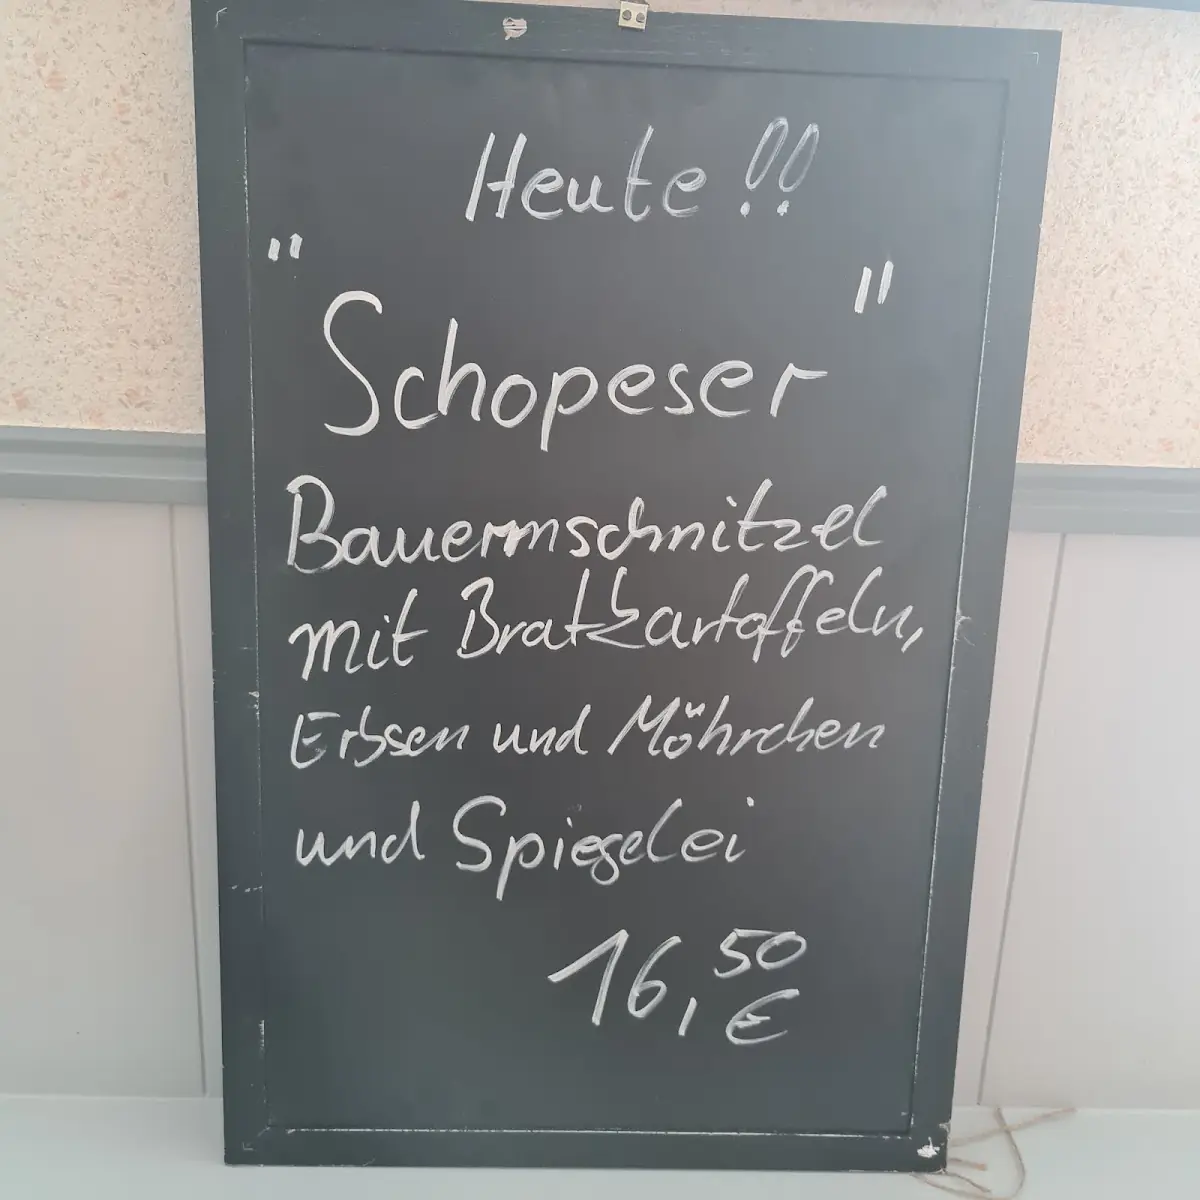 Heute !!
"Schopeser"
Bauernschnitzel
mit Bratkartoffeln,
Erbsen und Möhrchen
und Spiegelei
16,50 €